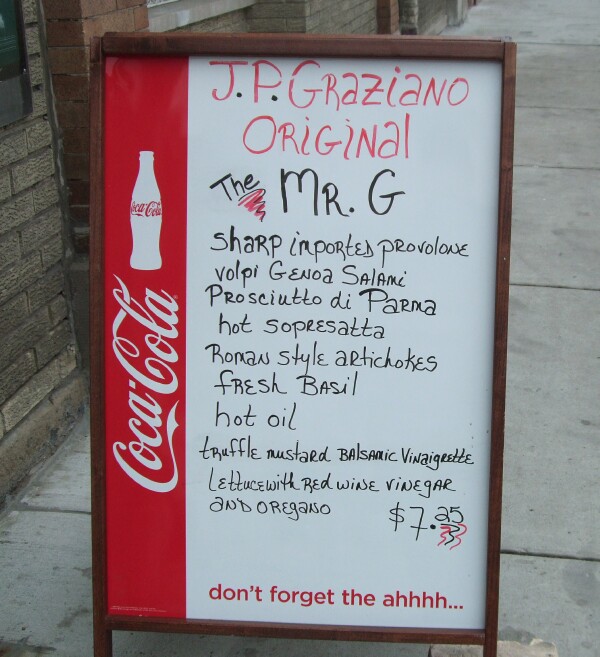 J.P. Graziano
Original
The Mr. G
sharp imported provolone
volpi Genoa Salami
Prosciutto di Parma
hot sopresatta
Roman style artichokes
fresh Basil
hot oil
truffle mustard Balsamic Vinaigrette
Lettuce with Red wine vinegar
and oregano
$7.25
Coca-Cola
Coca-Cola
don't forget the ahhhh...